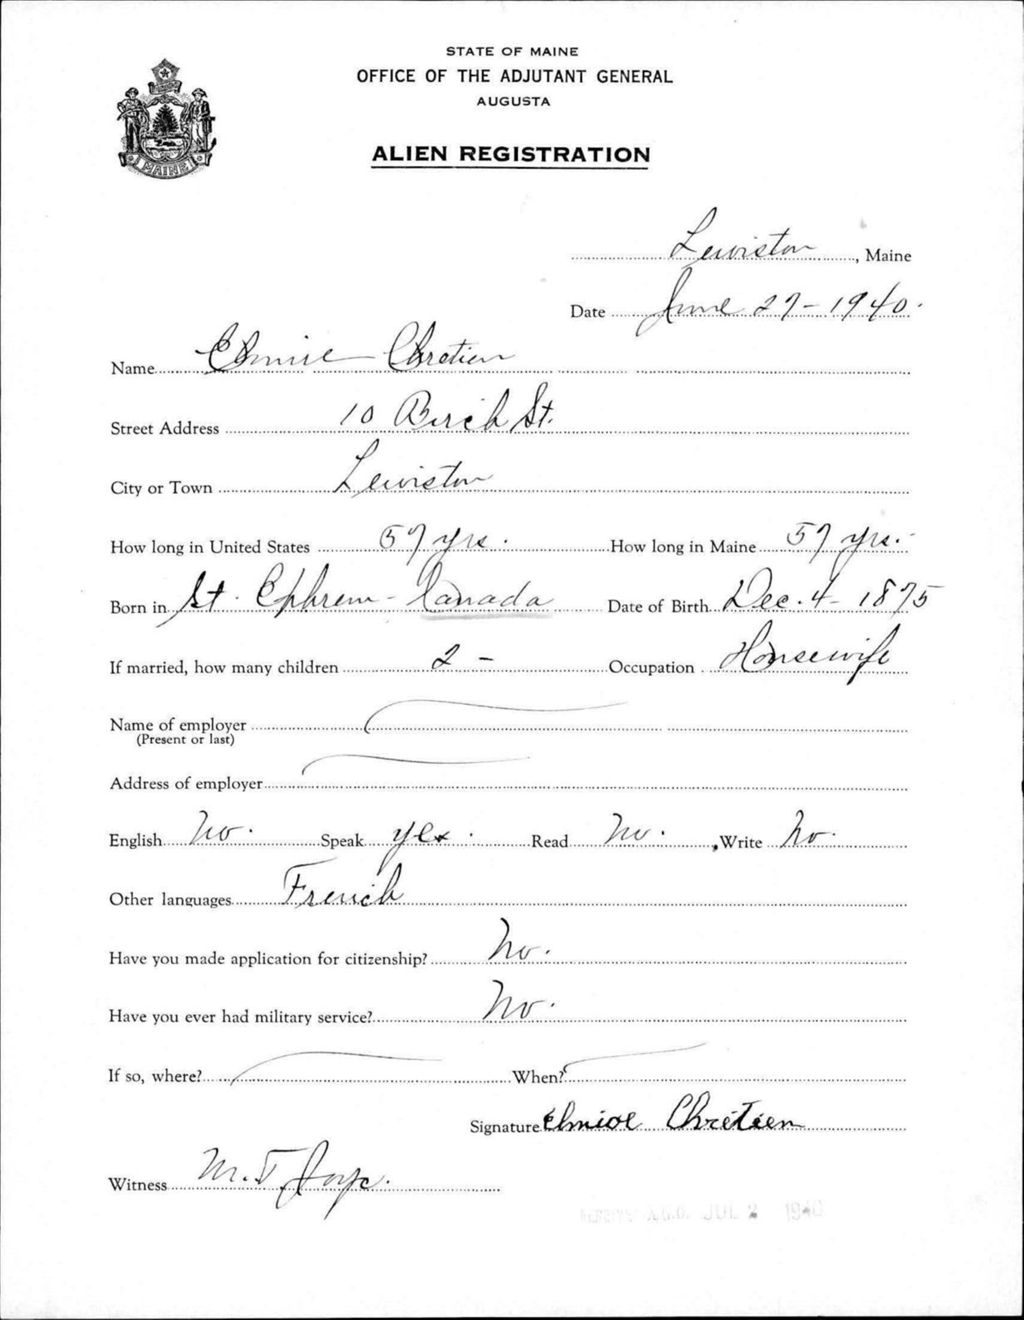 STATE OF MAINE
OFFICE OF THE ADJUTANT GENERAL
AUGUSTA
ALIEN REGISTRATION
MAINE
Lewiston, Maine
Date June 27-1940.
Name Elmire Chretien
Street Address 10 Birch St.
City or Town Lewiston
How long in United States 57 yrs. How long in Maine 57 yrs.
Born in St. Ephrem - Canada Date of Birth Dec. 4-1875
If married, how many children 2 - Occupation Housewife
Name of employer
(Present or last)
Address of employer
English No. Speak yes. Read No. Write No.
Other languages French
Have you made application for citizenship? No.
Have you ever had military service? No.
If so, where? When?
Signature Chretien
Witness M. T. Joyc.
A.G.O. JUL 2 1940